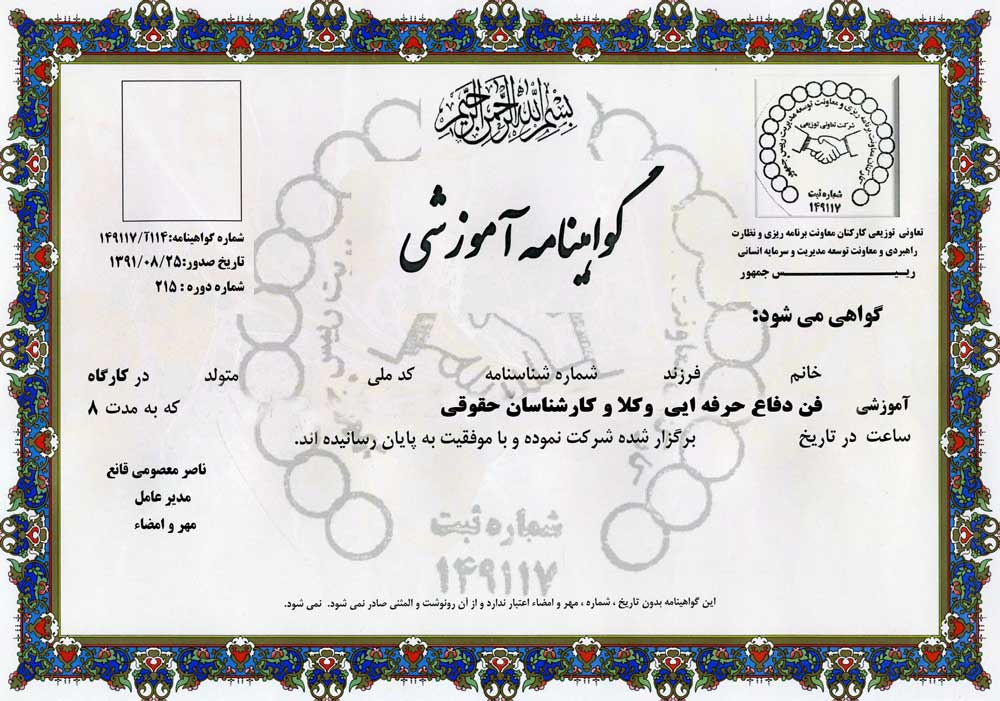 بسم الله الرحمن الرحيم
شرکت تعاونی توزیعی
شماره ثبت
۱۴۹۱۱۷
تعاونی توزیعی کارکنان معاونت برنامه ریزی و نظارت
راهبردی و معاونت توسعه مدیریت و سرمایه انسانی
ریــیــس جمهور
گواهینامه آموزشی
شماره گواهینامه:۱۱۴آ/۱۴۹۱۱۷
تاریخ صدور:۱۳۹۱/۰۸/۲۵
شماره دوره : ۲۱۵
گواهی می شود:
خانم فرزند شماره شناسنامه کد ملی متولد در کارگاه
آموزشی فن دفاع حرفه ایی وکلا و کارشناسان حقوقی که به مدت ۸
ساعت در تاریخ برگزار شده شرکت نموده و با موفقیت به پایان رسانیده اند.
ناصر معصومی قانع
مدیر عامل
مهر و امضاء
شماره ثبت
۱۴۹۱۱۷
این گواهینامه بدون تاریخ ، شماره ، مهر و امضاء اعتبار ندارد و از آن رونوشت و المثنی صادر نمی شود. نمی شود.